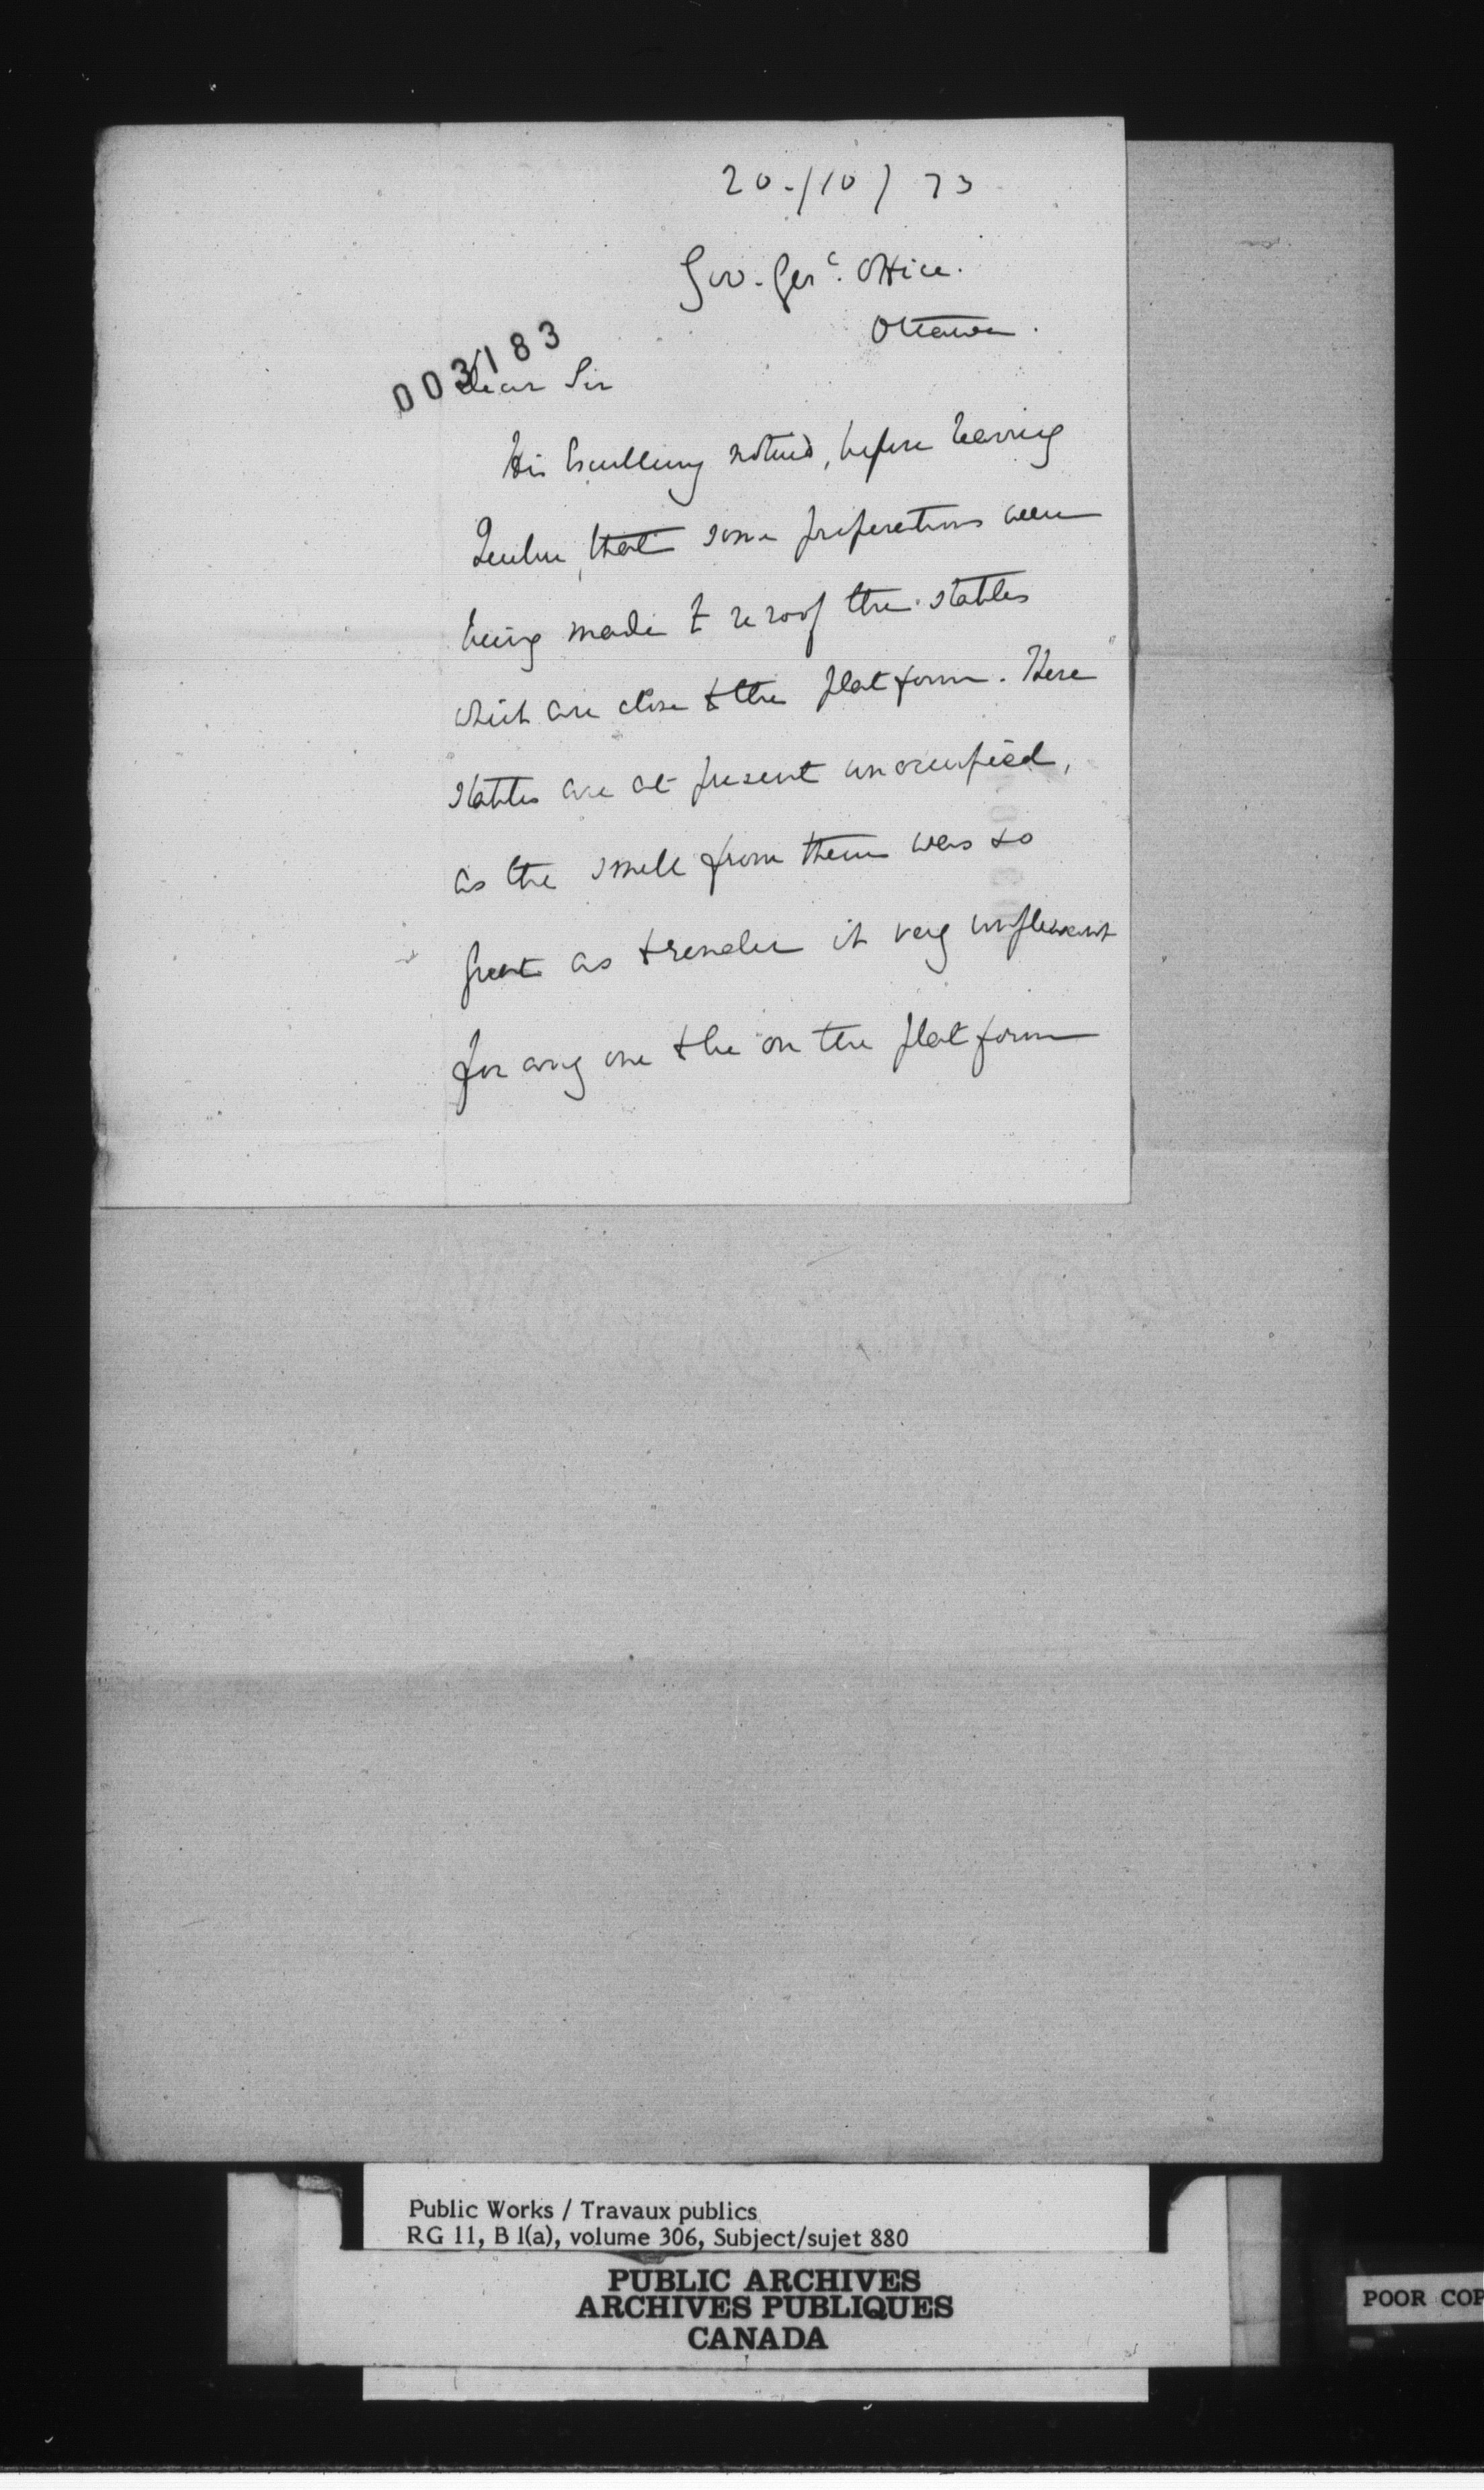 20./10/73
Gov. Genl. Office.
Ottawa.
003183
Dear Sir
His Excellency noticed, before leaving
Quebec, that some preparations were
being made to re roof the stables
which are close to the platform. These
stables are at present unoccupied,
as the smell from them was so
great as to render it very unpleasant
for any one to be on the platform
Public Works / Travaux publics
RG 11, B 1(a), volume 306, Subject/sujet 880
PUBLIC ARCHIVES
ARCHIVES PUBLIQUES
CANADA
POOR COP